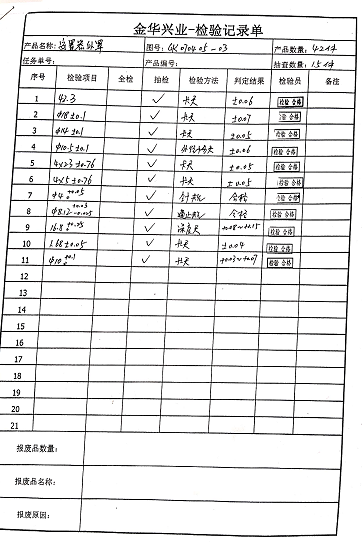 金华兴业-检验记录单
产品名称: 图号: GK070405-03 产品数量: 42件
任务单号: 产品编号: 抽查数量: 15件
序号 检验项目 全检 抽检 检验方法 判定结果 检验员 备注
1 42.3 ✓ 卡尺 ±0.06 检验 合格
2 φ18±0.1 ✓ 卡尺 ±0.07 检验 合格
3 φ14±0.1 ✓ 卡尺 ±0.05 检验 合格
4 φ10.5±0.1 ✓ ±0.06 检验 合格
5 4x23±0.76 ✓ 卡尺 ±0.05 检验 合格
6 4x5±0.76 ✓ 卡尺 ±0.05 检验 合格
7 φ4 +0.05 0 ✓ 针规 合格 检验 合格
8 φ8.12 +0.03 -0.025 ✓ 合格 检验 合格
9 16.8 ✓ 深度尺 检验 合格
10 1.68±0.05 ✓ 卡尺 ±0.04 检验 合格
11 φ10 +0.1 0 ✓ 卡尺 +0.03~+0.07 检验 合格
12
13
14
15
16
17
18
19
20
21
报废品数量:
报废品名称:
报废原因: